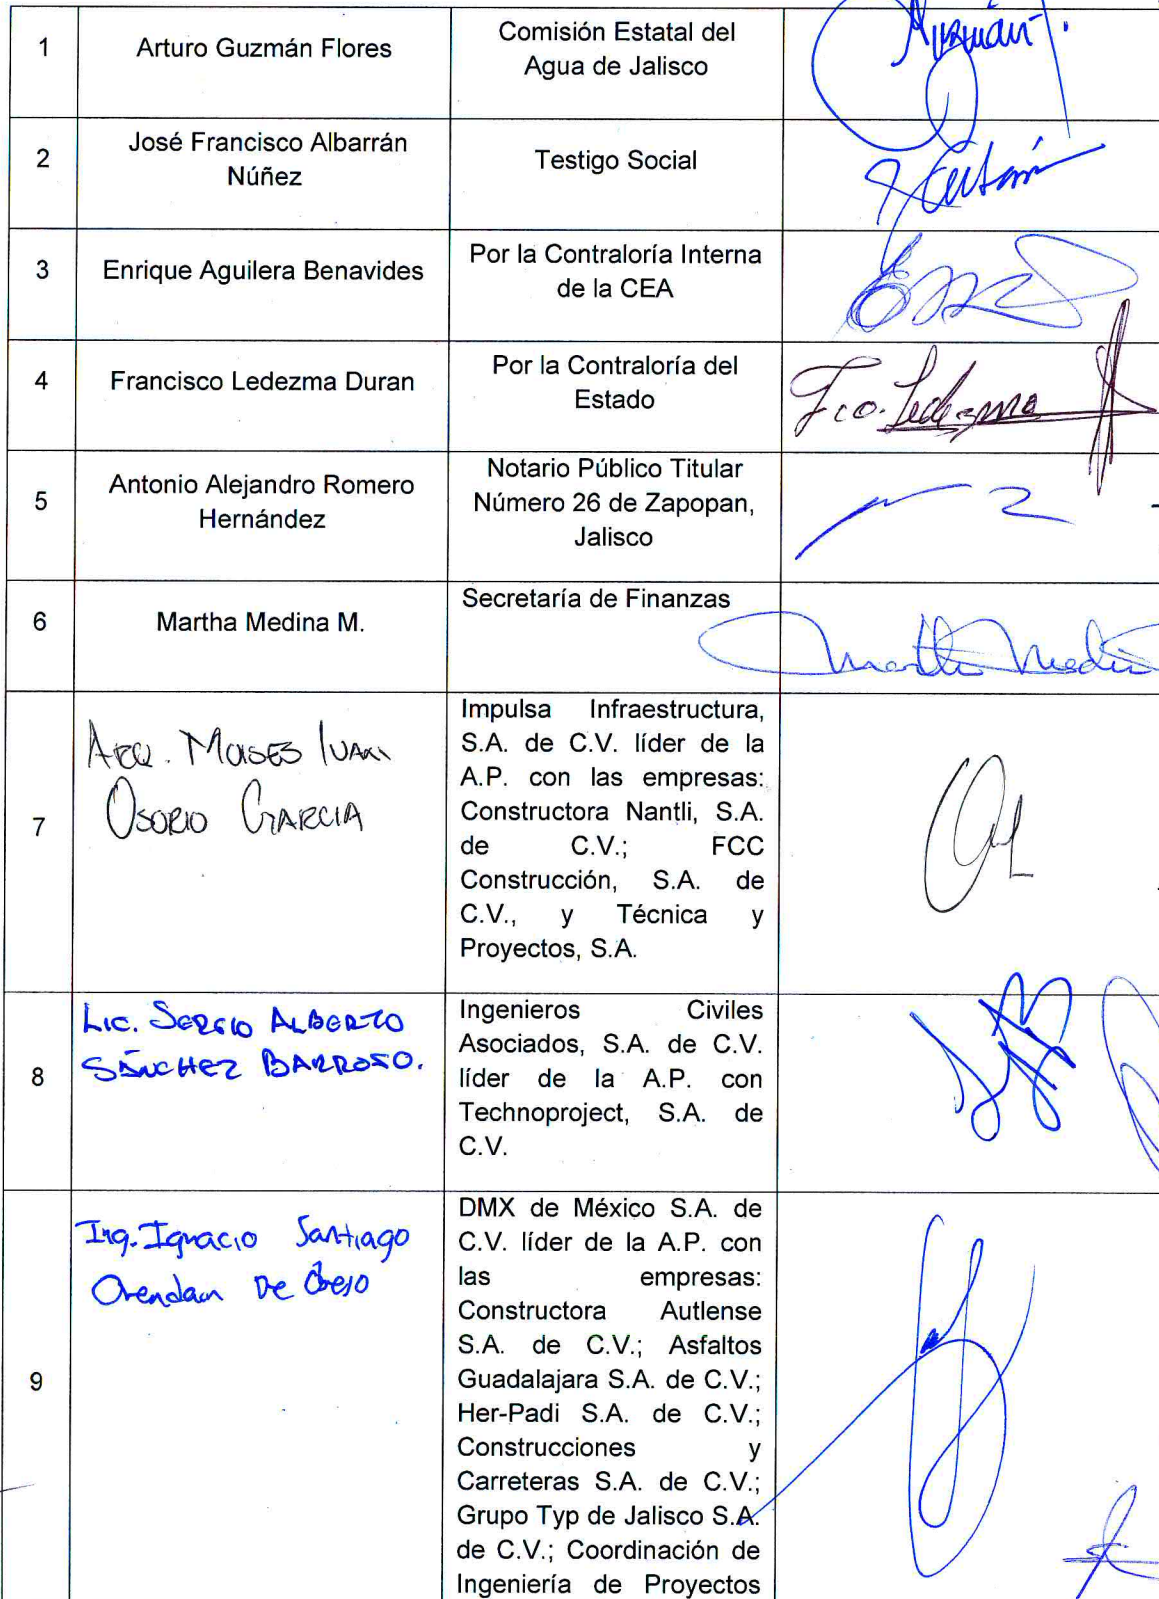 1
Arturo Guzmán Flores
Comisión Estatal del
Agua de Jalisco
2
José Francisco Albarrán
Núñez
Testigo Social
3
Enrique Aguilera Benavides
Por la Contraloría Interna
de la CEA
4
Francisco Ledezma Duran
Por la Contraloría del
Estado
Fco. Ledezma
5
Antonio Alejandro Romero
Hernández
Notario Público Titular
Número 26 de Zapopan,
Jalisco
6
Martha Medina M.
Secretaría de Finanzas
Martha Medina
7
ARQ. MOISES IVAN
OSORIO GARCIA
Impulsa Infraestructura,
S.A. de C.V. líder de la
A.P. con las empresas:
Constructora Nantli, S.A.
de C.V.; FCC
Construcción, S.A. de
C.V., y Técnica y
Proyectos, S.A.
8
LIC. SERGIO ALBERTO
SÁNCHEZ BARROSO.
Ingenieros Civiles
Asociados, S.A. de C.V.
líder de la A.P. con
Technoproject, S.A. de
C.V.
9
Ing. Ignacio Santiago
Orendain De Obeso
DMX de México S.A. de
C.V. líder de la A.P. con
las empresas:
Constructora Autlense
S.A. de C.V.; Asfaltos
Guadalajara S.A. de C.V.;
Her-Padi S.A. de C.V.;
Construcciones y
Carreteras S.A. de C.V.;
Grupo Typ de Jalisco S.A.
de C.V.; Coordinación de
Ingeniería de Proyectos